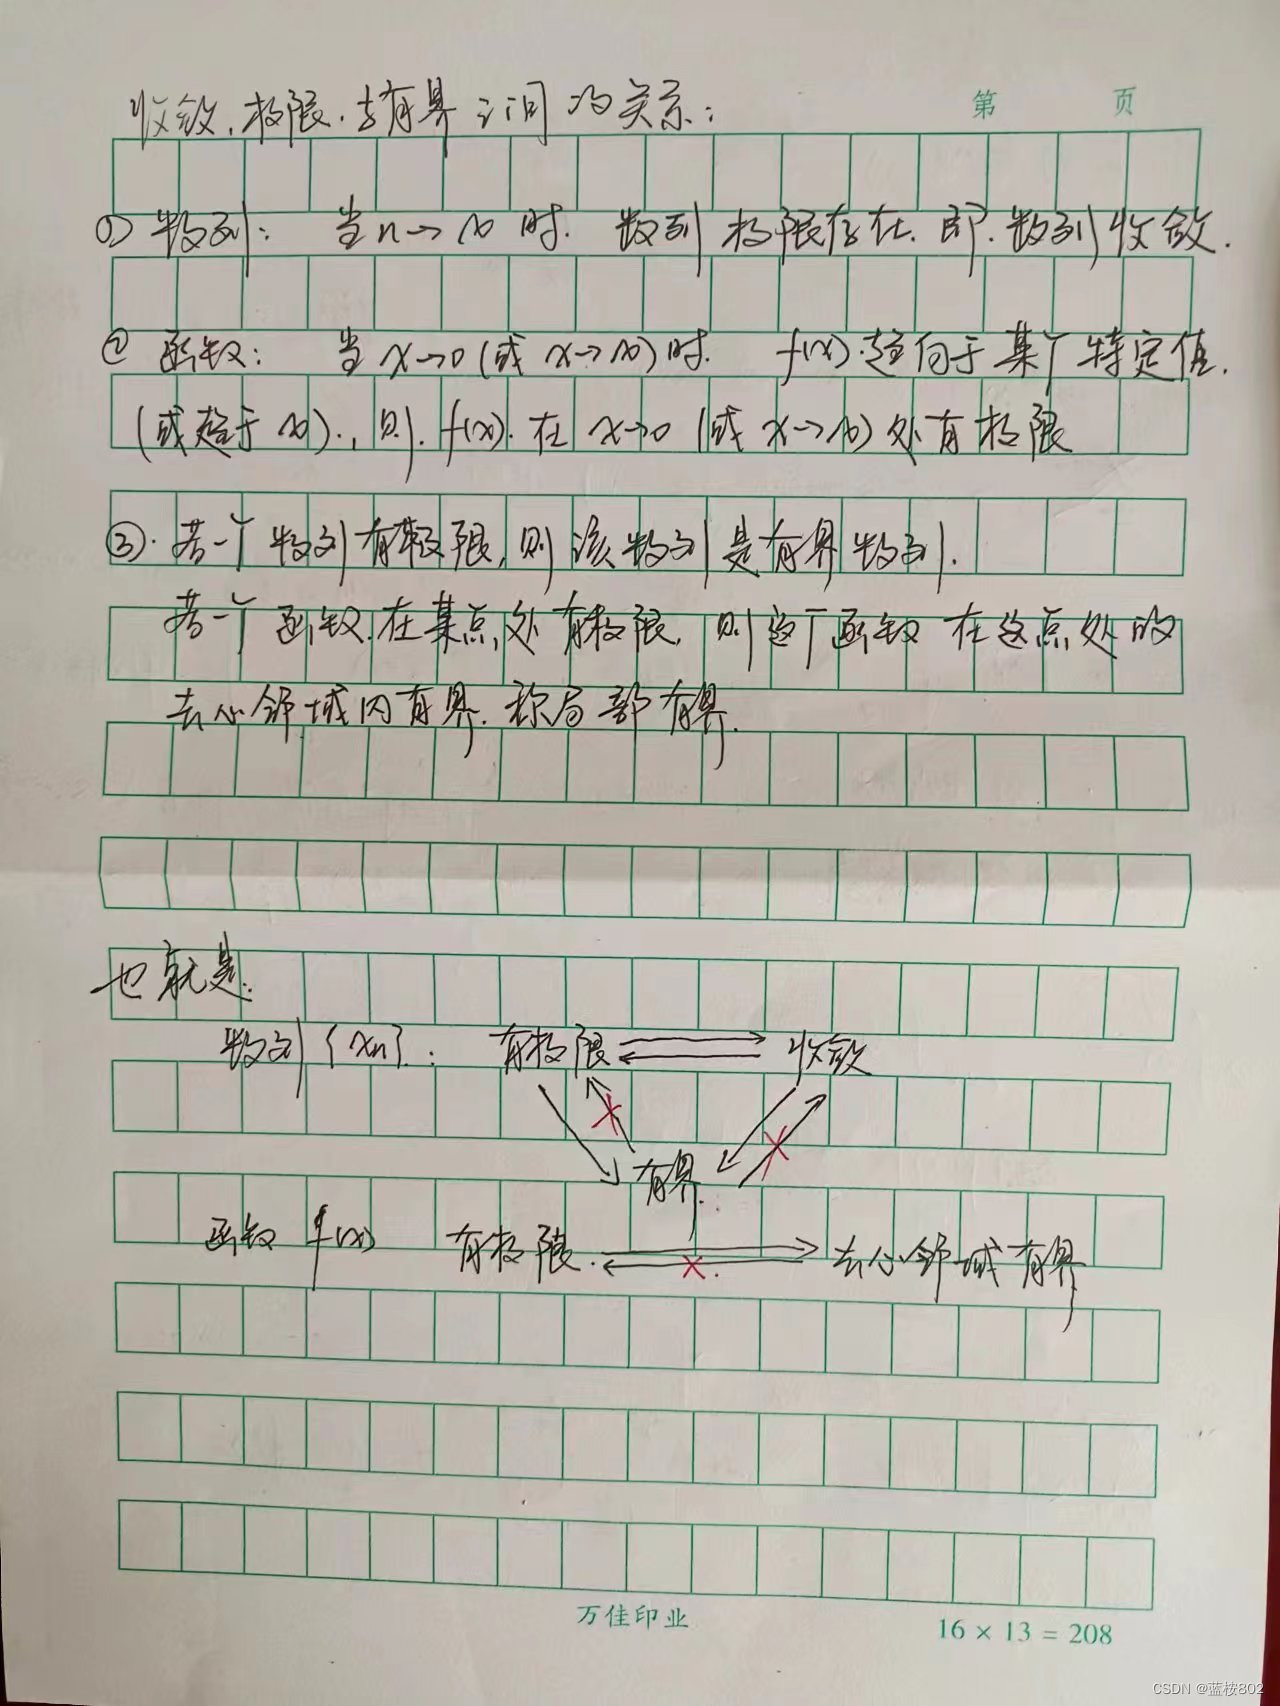 收敛、极限、与有界之间的关系：
第 页
① 数列： 当n→∞时. 数列极限存在. 即. 数列收敛.
② 函数： 当x→0(或x→∞)时. f(x).趋向于某个特定值.
(或趋于∞)., 则. f(x). 在x→0 (或x→∞)处有极限
③. 若一个数列有极限, 则该数列是有界数列.
若一个函数.在某点处有极限, 则这个函数在这点处的
去心邻域内有界. 称局部有界.
也就是:
数列{xn}: 有极限 ⇄ 收敛
× ×
有界.
函数 f(x) 有极限. ⇄ 去心邻域有界
×.
万佳印业
16 × 13 = 208
CSDN @蓝桉802